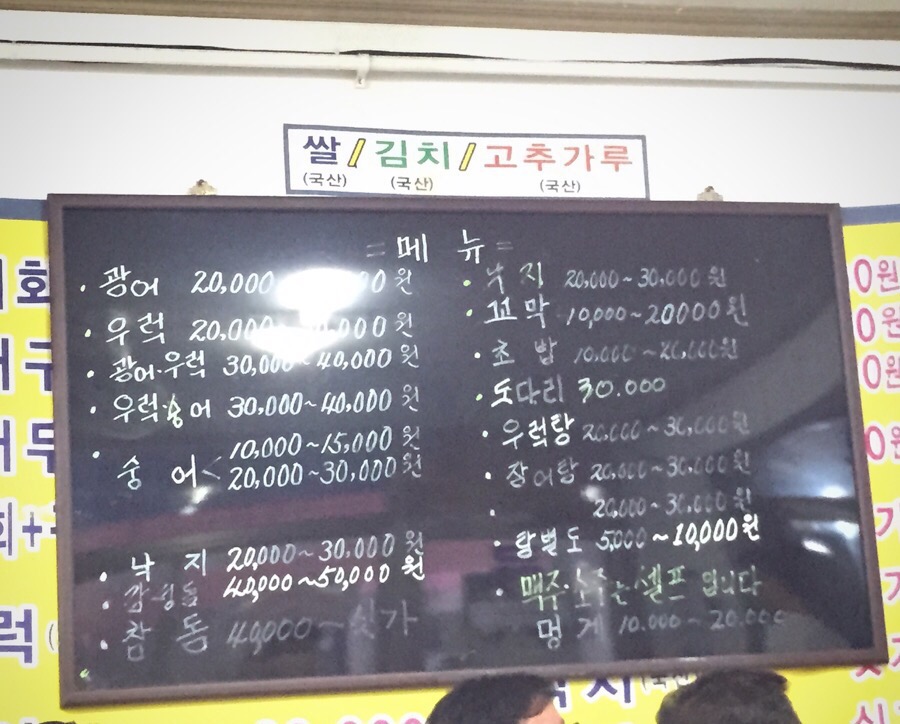 쌀/김치/고추가루
(국산) (국산) (국산)
= 메 뉴 =
· 광어 20,000 원
· 우럭 20,000 원
· 광어·우럭 30,000~40,000 원
· 우럭·숭어 30,000~40,000 원
· 숭 어 < 10,000~15,000 원
20,000~30,000 원
· 낙 지 20,000~30,000 원
· 감성돔 40,000~50,000 원
· 참 돔 40,000~싯가
· 낙 지 20,000~30,000 원
· 꼬 막 10,000~20000 원
· 초 밥 10,000~20,000원
· 도다리 30.000
· 우럭탕 20,000~30,000 원
· 장어탕 20,000~30,000 원
· 20,000~30,000 원
· 탕별도 5,000~10,000 원
· 맥주·소주는 셀프 입니다
멍 게 10.000~20.000